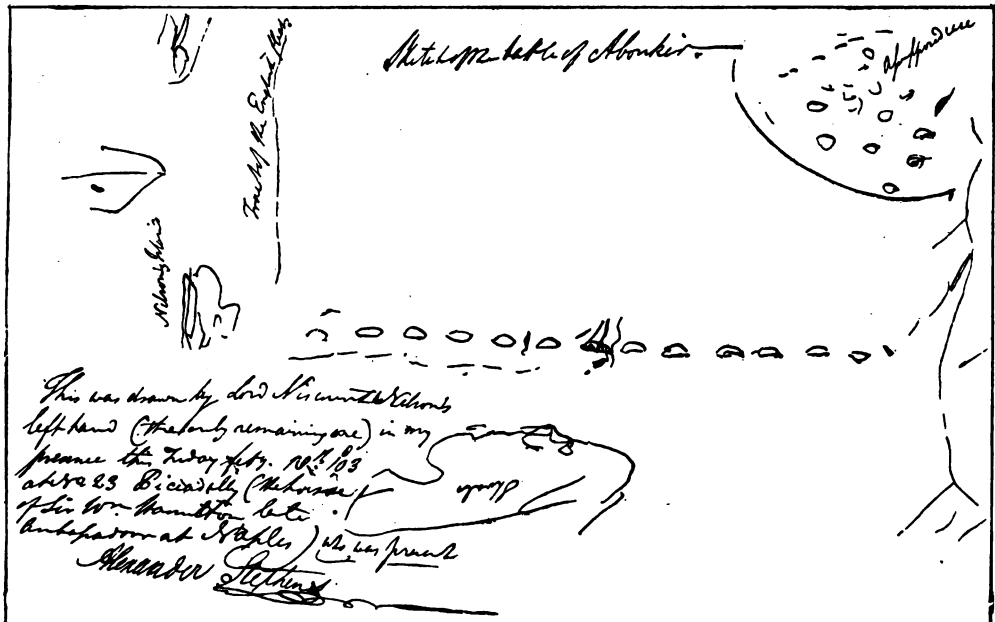 Sketch of the battle of Aboukir.
Track of the English Fleet
Nelson's
This was drawn by Lord Viscount Nelson's
left hand (the only remaining one) in my
presence this Friday feby. 18th /03
at No 23 Piccadilly (the house
of Sir Wm Hamilton late
Ambassadour at Naples) who was present
Alexander Stephens
Shoals